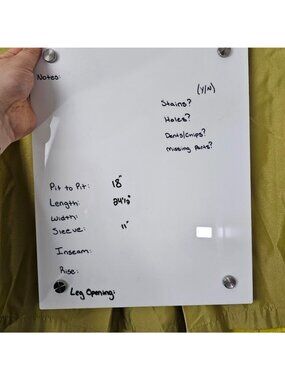 Notes:
(Y/N)
Stains?
Holes?
Dents/Chips?
Missing Parts?
Pit to Pit: 18"
Length: 24½"
Width:
Sleeve: 11"
Inseam:
Rise:
Leg Opening: